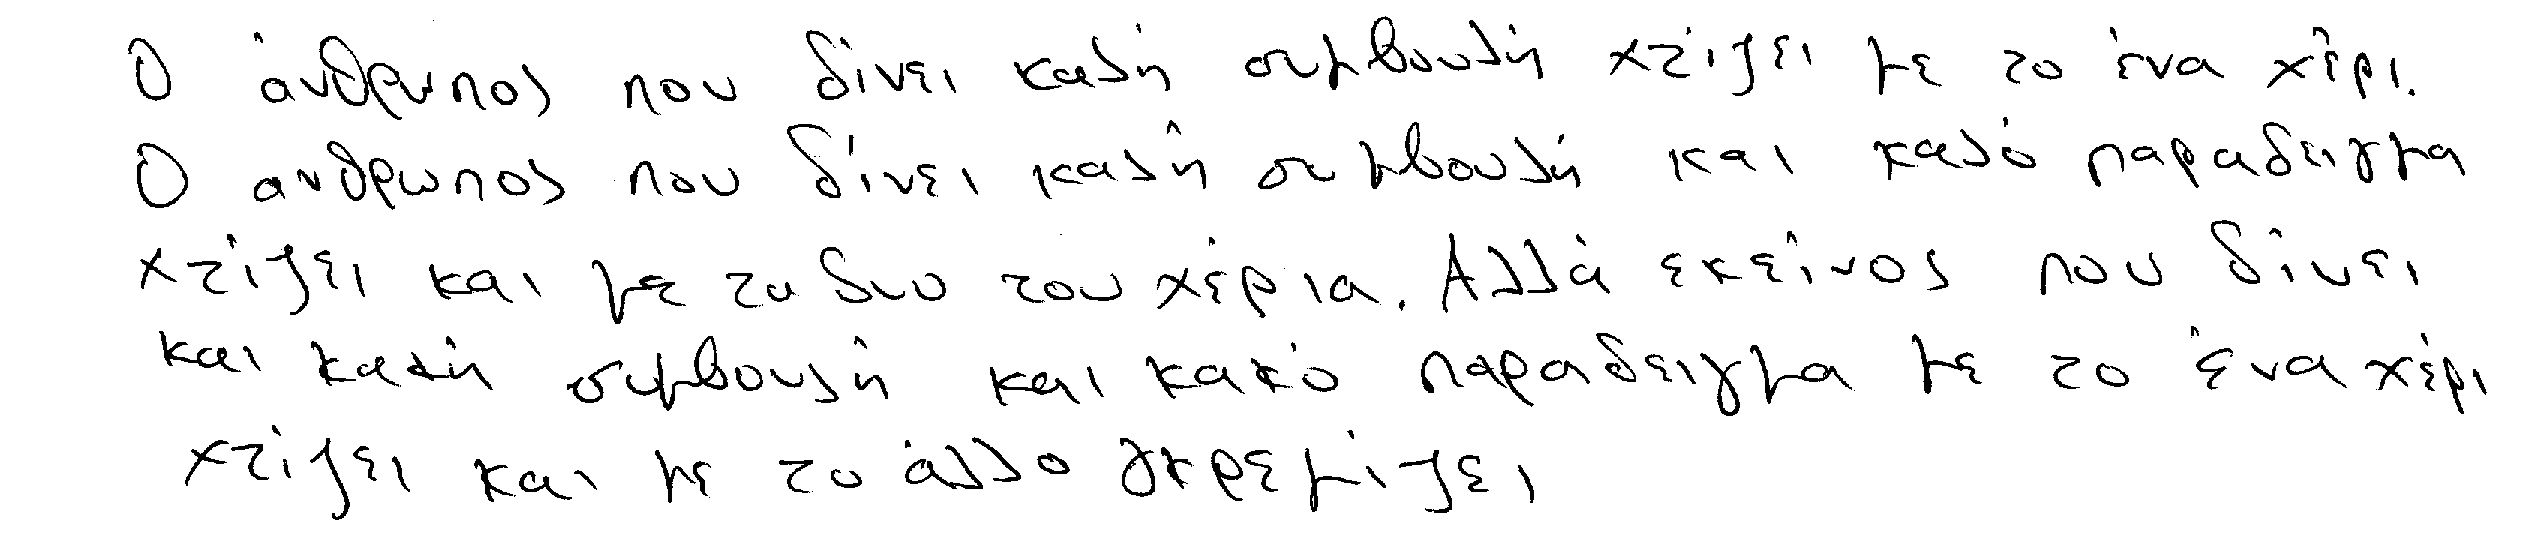 Ο άνθρωπος που δίνει καλή συμβουλή χτίζει με το ένα χέρι.
Ο ανθρωπος που δίνει καλή συμβουλή και καλό παραδειγμα
χτίζει και με τα δυο του χέρια. Αλλά εκείνος που δίνει
και κακή συμβουλή και κακό παραδειγμα με το ένα χέρι
χτίζει και με το άλλο γκρεμίζει